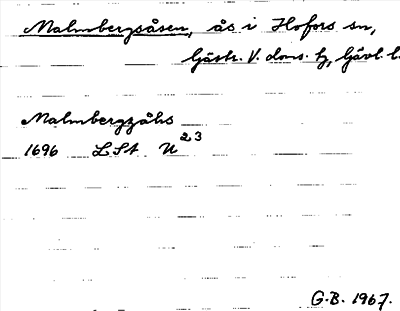 Malmbergsåsen, ås i Hofors sn,
Gästr. V. doms. tg, Gävl. l.
Malmbergzåhs
1696 LSA U 23
G.B. 1967.